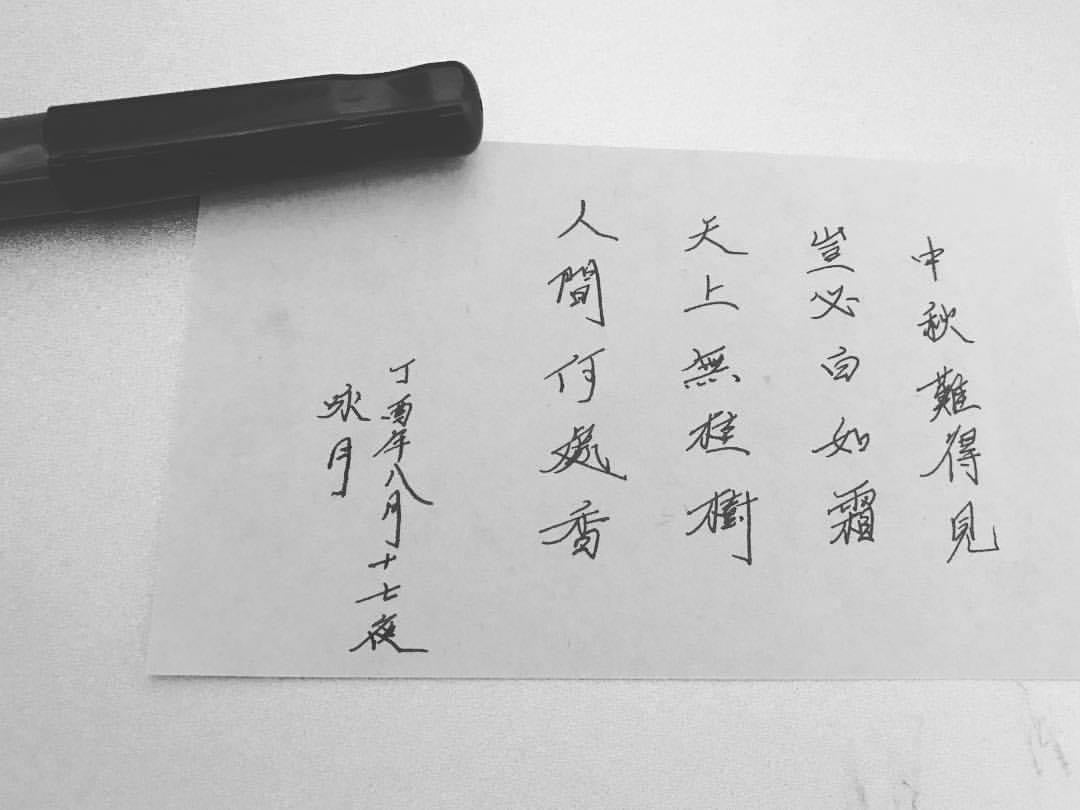 中秋難得見
豈必白如霜
天上無桂樹
人間何處香
丁酉年八月十七夜
咏月